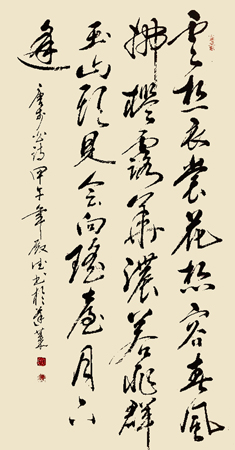 云想衣裳花想容春風
拂檻露華濃若非群
玉山頭見会向瑤臺月下
逢
唐李白詩甲午年